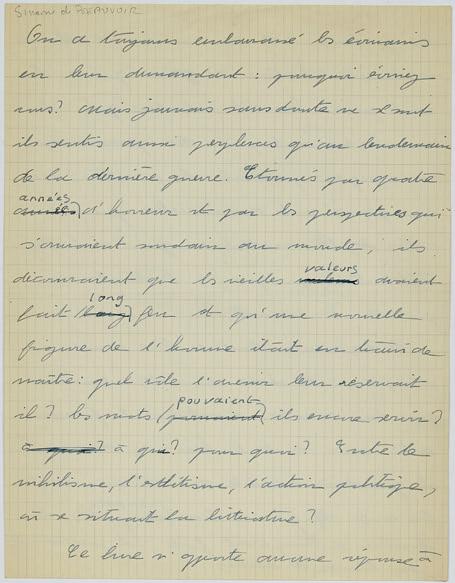 Simone de BEAUVOIR
On a toujours embarrassé les écrivains
en leur demandant : pourquoi écrivez
vous? Mais jamais sans doute ne se sont
ils sentis aussi perplexes qu'au lendemain
de la dernière guerre. Etonnés par quatre
années
d'horreur et par les perspectives qui
s'ouvraient soudain au monde, ils
valeurs
découvraient que les vieilles avaient
long
fait feu et qu'une nouvelle
figure de l'homme était en train de
naître : quel rôle l'avenir leur réservait
pouvaient
il? les mots ils encore servir?
à quoi? à qui? pour quoi? Entre le
nihilisme, l'esthétisme, l'action politique,
où se situait la littérature?
Ce livre n'apporte aucune réponse à